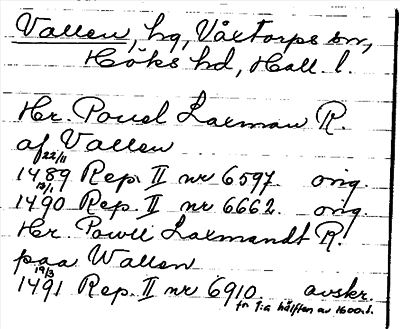 Vallen, hg, Våxtorps sn,
Höks hd, Hall. l.
Hr. Pouel Laxman R.
af Vallen
22/11
1489 Rep. II nr 6597. orig.
10/1
1490 Rep. II nr 6662. orig.
Hr. Powll Laxmandt R.
paa Wallen
19/3
1491 Rep. II nr 6910. avskr.
fr. 1:a hälften av 1600-t.